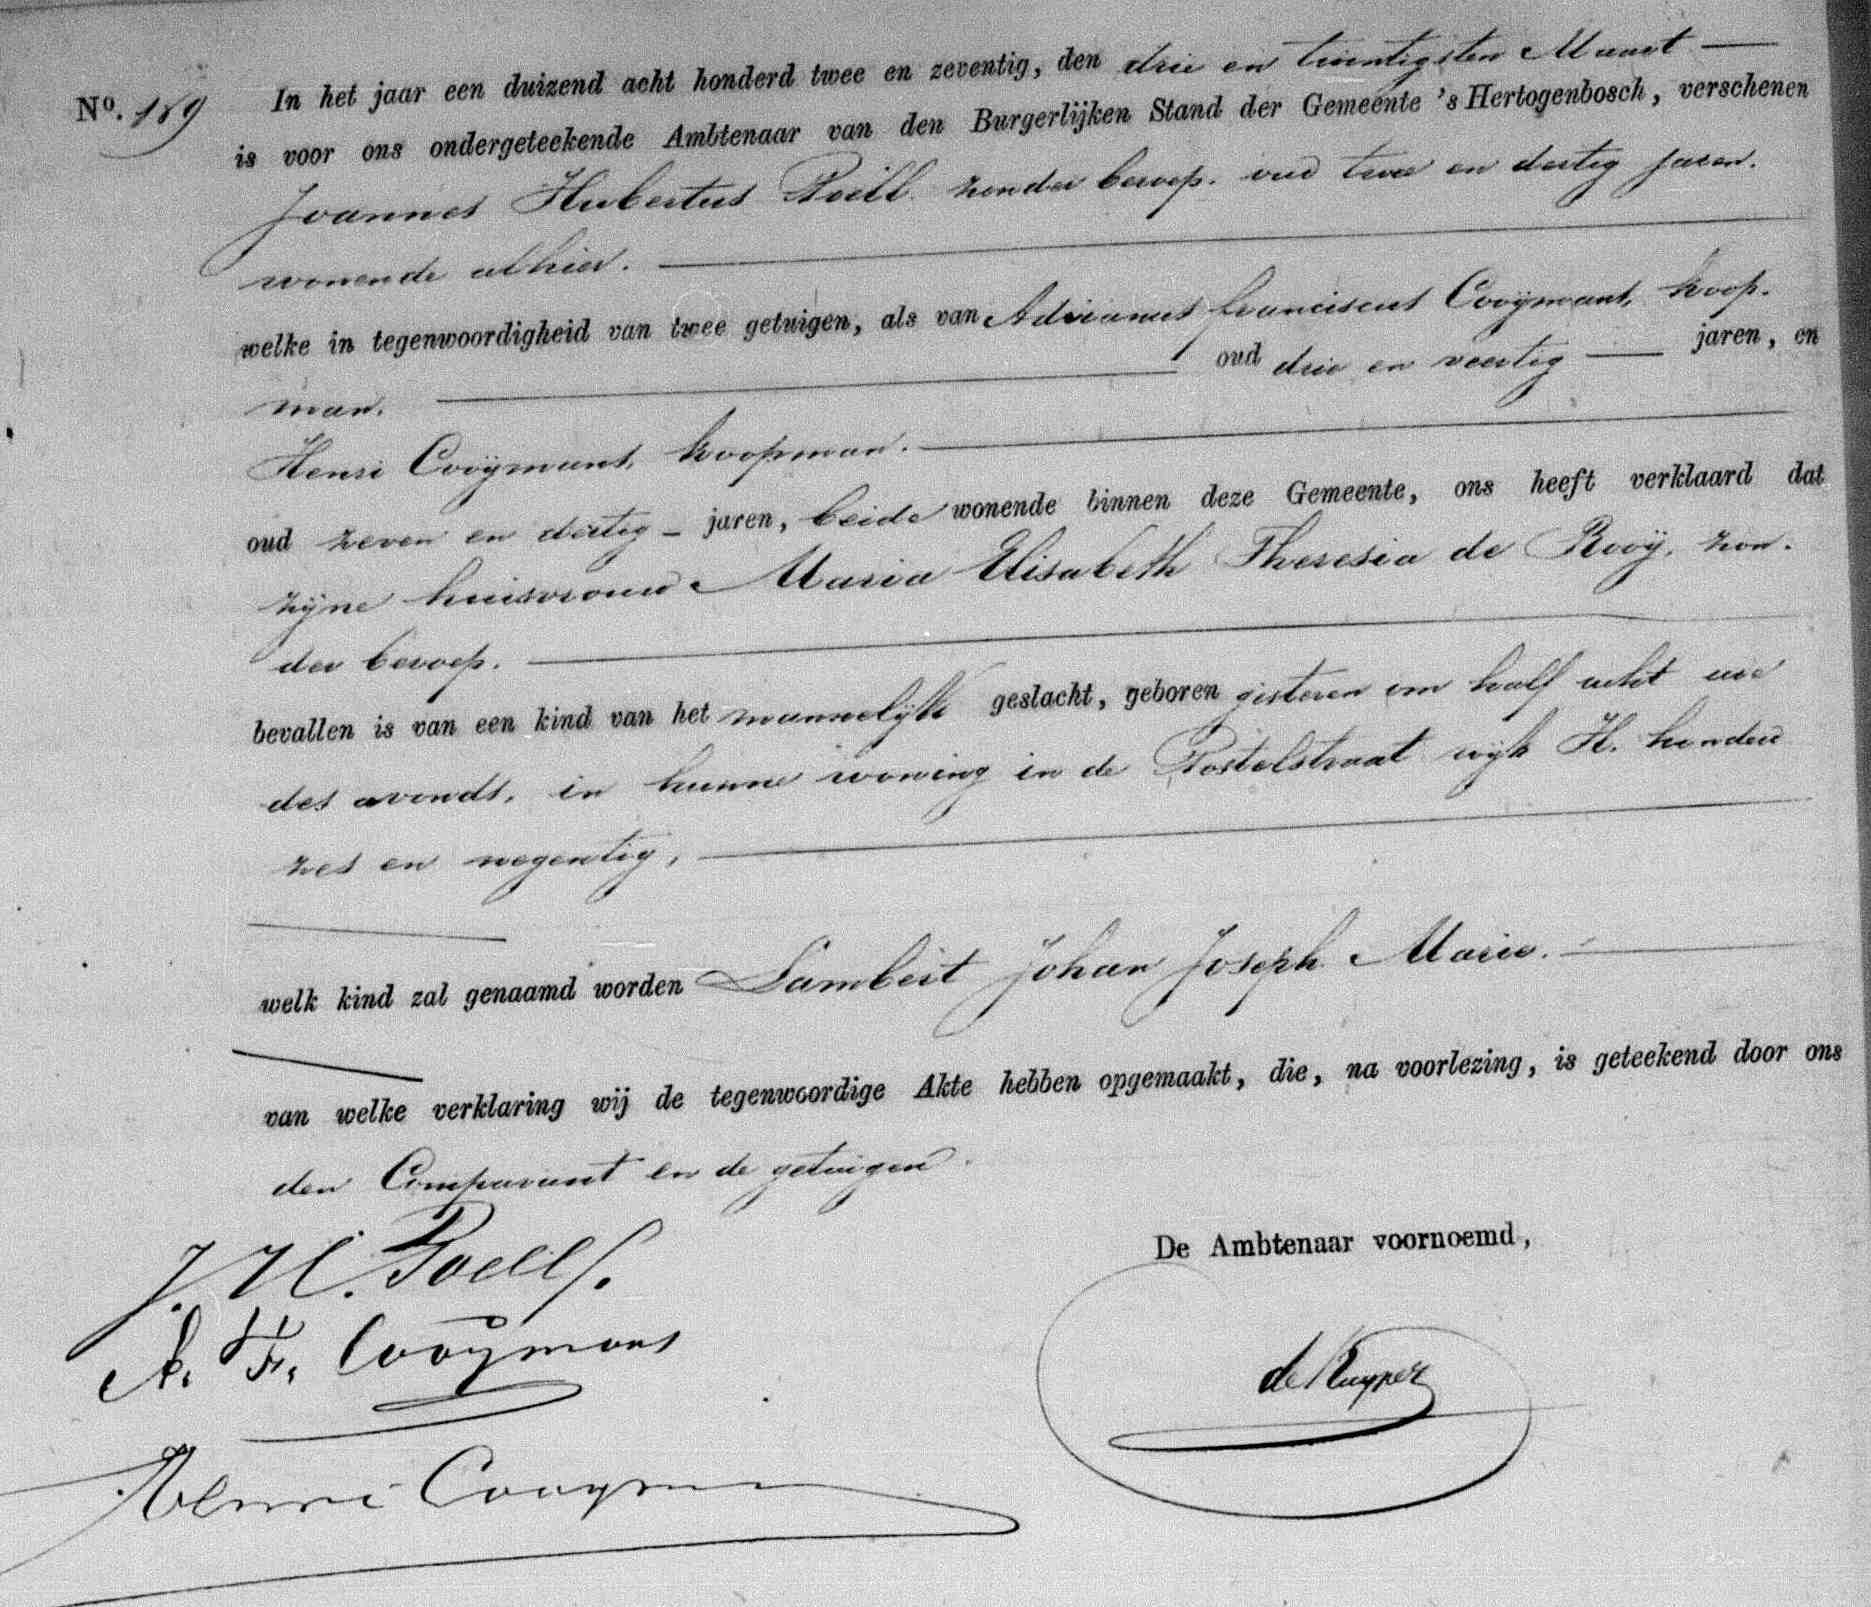 N°. 189 In het jaar een duizend acht honderd twee en zeventig, den drie en twintigsten Maart
is voor ons ondergeteekende Ambtenaar van den Burgerlijken Stand der Gemeente 's Hertogenbosch, verschenen
Joannes Hubertus Poell. zonder beroep. oud twee en dertig jaren.
wonende alhier.
welke in tegenwoordigheid van twee getuigen, als van Adrianus Franciscus Cooÿmans, koop-
man. oud drie en veertig jaren, en
Henri Cooÿmans, koopman.
oud zeven en dertig jaren, beide wonende binnen deze Gemeente, ons heeft verklaard dat
zijne huisvrouw Maria Elisabeth Theresia de Rooÿ, zon-
der beroep.
bevallen is van een kind van het mannelijk geslacht, geboren gisteren om half acht ure
des avonds, in hunne woning in de Postelstraat wijk H. honderd
zes en negentig,
welk kind zal genaamd worden Lambert Johan Joseph Marie.
van welke verklaring wij de tegenwoordige Akte hebben opgemaakt, die, na voorlezing, is geteekend door ons
den Comparant en de getuigen.
De Ambtenaar voornoemd,
J. H. Poell.
A. F. Cooÿmans
de Kuyper
Henri Cooymans